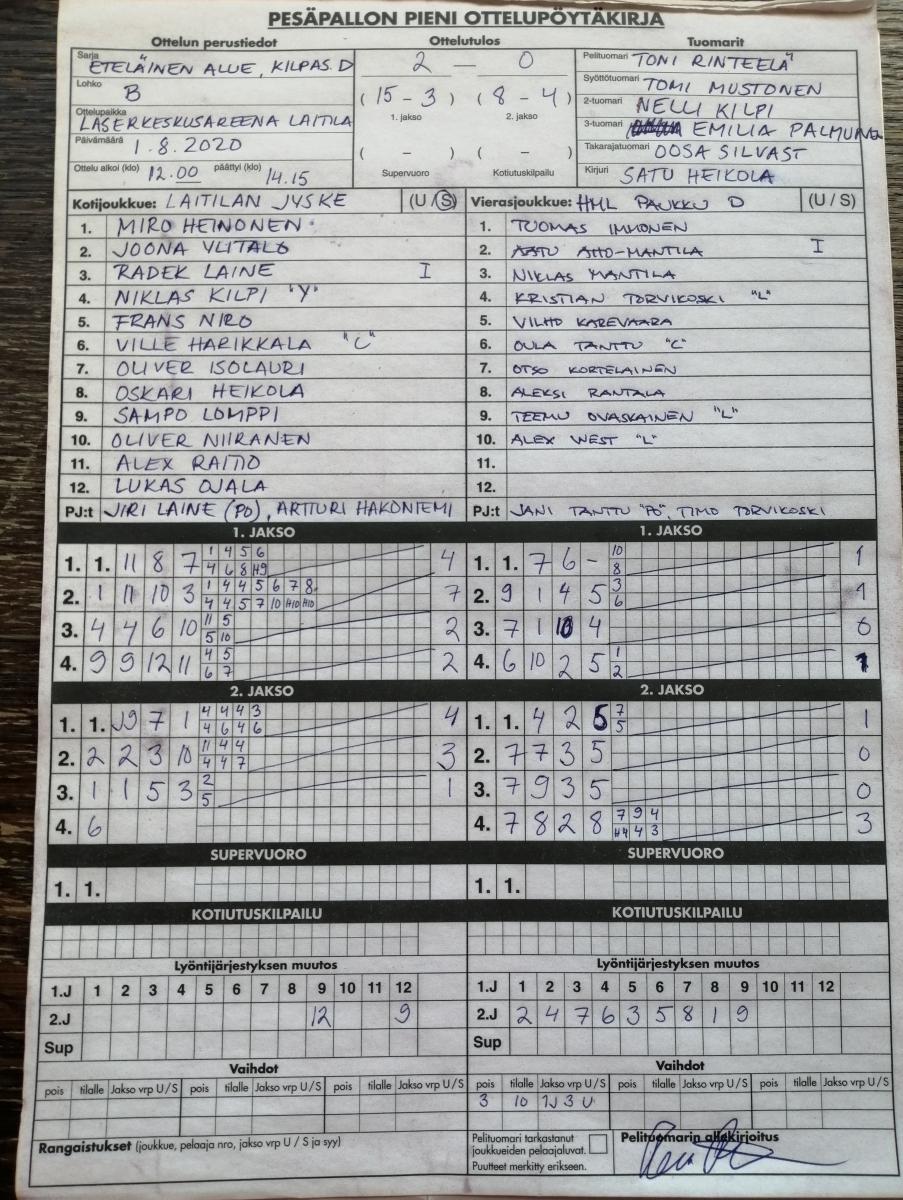 PESÄPALLON PIENI OTTELUPÖYTÄKIRJA
Ottelun perustiedot Ottelutulos Tuomarit
Sarja ETELÄINEN ALUE, KILPAS. D
Lohko B
Ottelupaikka LASERKESKUSAREENA LAITILA
Päivämäärä 1.8.2020
Ottelu alkoi (klo) 12.00 päättyi (klo) 14.15
2 — 0
(15 - 3) (8 - 4)
1. jakso 2. jakso
( - ) ( - )
Supervuoro Kotiutuskilpailu
Pelituomari TONI RINTEELÄ
Syöttötuomari TOMI MUSTONEN
2-tuomari NELLI KILPI
3-tuomari EMILIA
Takarajatuomari OOSA SILVAST
Kirjuri SATU HEIKOLA
Kotijoukkue: LAITILAN JYSKE (U / S)
1. MIRO HEINONEN
2. JOONA YLITALO
3. RADEK LAINE I
4. NIKLAS KILPI "Y"
5. FRANS NIRO
6. VILLE HARIKKALA "C"
7. OLIVER ISOLAURI
8. OSKARI HEIKOLA
9. SAMPO LOMPPI
10. OLIVER NIIRANEN
11. ALEX RAITIO
12. LUKAS OJALA
PJ:t JIRI LAINE (PO), ARTTURI HAKONIEMI
Vierasjoukkue: HML PAUKKU D (U / S)
1. TUOMAS IMMONEN
2. AATU AHO-MANTILA I
3. NIKLAS MANTILA
4. KRISTIAN TORVIKOSKI "L"
5. VILHO KAREVAARA
6. OULA TANTTU "C"
7. OTSO KORTELAINEN
8. ALEKSI RANTALA
9. TEEMU OVASKAINEN "L"
10. ALEX WEST "L"
11.
12.
PJ:t JANI TANTTU "PO", TIMO TORVIKOSKI
1. JAKSO
1. 1. 11 8 7 1 4 5 6 4
4 6 8 H9
2. 1 11 10 3 1 4 4 5 6 7 8 7
4 4 5 7 10 H10 H10
3. 4 4 6 10 11 5 2
5 10
4. 9 9 12 11 4 5 2
6 7
2. JAKSO
1. 1. 7 1 4 4 4 3 4
4 6 4 6
2. 2 2 3 10 11 4 4 3
4 4 7
3. 1 1 5 3 2 1
5
4. 6
SUPERVUORO
1. 1.
KOTIUTUSKILPAILU
1. JAKSO
1. 1. 7 6 - 10 1
8
2. 9 1 4 5 3 1
6
3. 7 1 10 4 0
4. 6 10 2 5 1 1
2
2. JAKSO
1. 1. 4 2 5 7 1
5
2. 7 7 3 5 0
3. 7 9 3 5 0
4. 7 8 2 8 7 9 4 3
H4 4 3
SUPERVUORO
1. 1.
KOTIUTUSKILPAILU
Lyöntijärjestyksen muutos
1.J 1 2 3 4 5 6 7 8 9 10 11 12
2.J 12 9
Sup
Vaihdot
pois tilalle Jakso vrp U / S pois tilalle Jakso vrp U / S pois tilalle Jakso vrp U / S
Lyöntijärjestyksen muutos
1.J 1 2 3 4 5 6 7 8 9 10 11 12
2.J 2 4 7 6 3 5 8 1 9
Sup
Vaihdot
pois tilalle Jakso vrp U / S pois tilalle Jakso vrp U / S pois tilalle Jakso vrp U / S
3 10 1J 3 U
Rangaistukset (joukkue, pelaaja nro, jakso vrp U / S ja syy)
Pelituomari tarkastanut
joukkueiden pelaajaluvat.
Puutteet merkitty erikseen.
Pelituomarin allekirjoitus